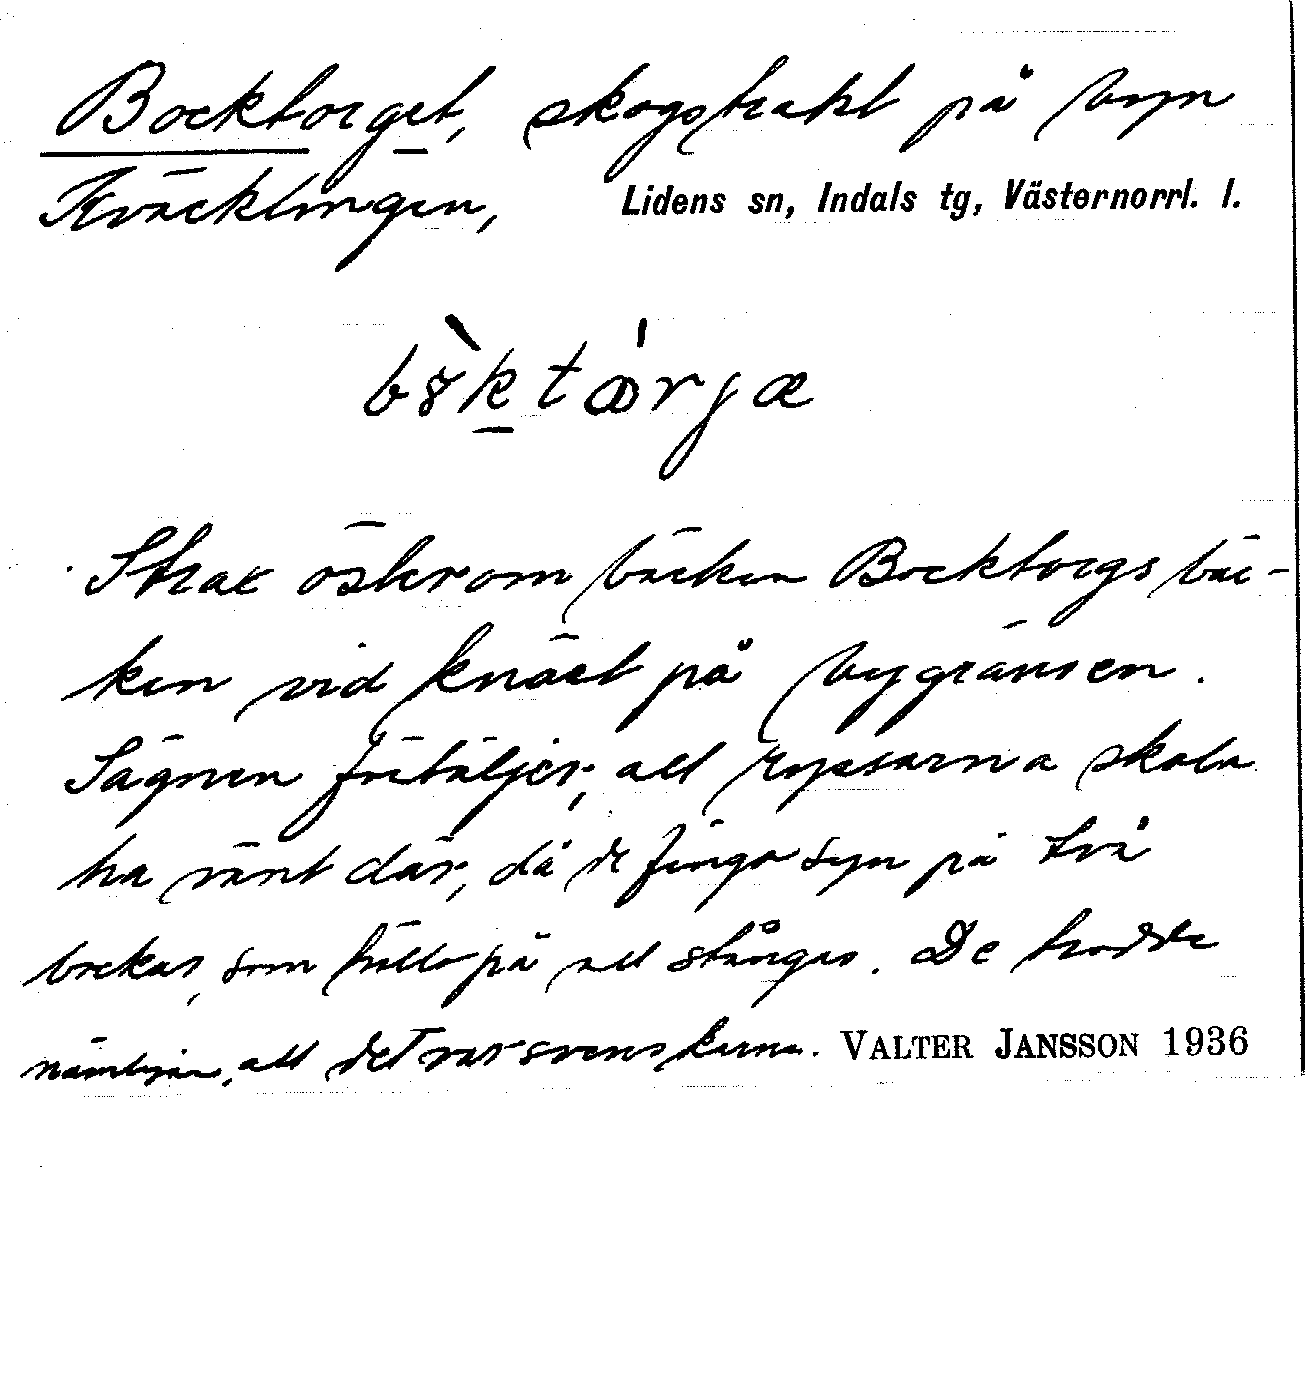 Bocktorget, skogstrakt på byn
Kväcklingen, Lidens sn, Indals tg, Västernorrl. l.
Strax öster om bäcken Bocktorgsbäc-
ken vid knäet på bygränsen.
Sägnen förtäljer, att ryssarna skola
ha vänt där, då de fingo syn på två
bockar, som höllo på att stångas. De trodde
nämligen, att det var svenskarna. VALTER JANSSON 1936